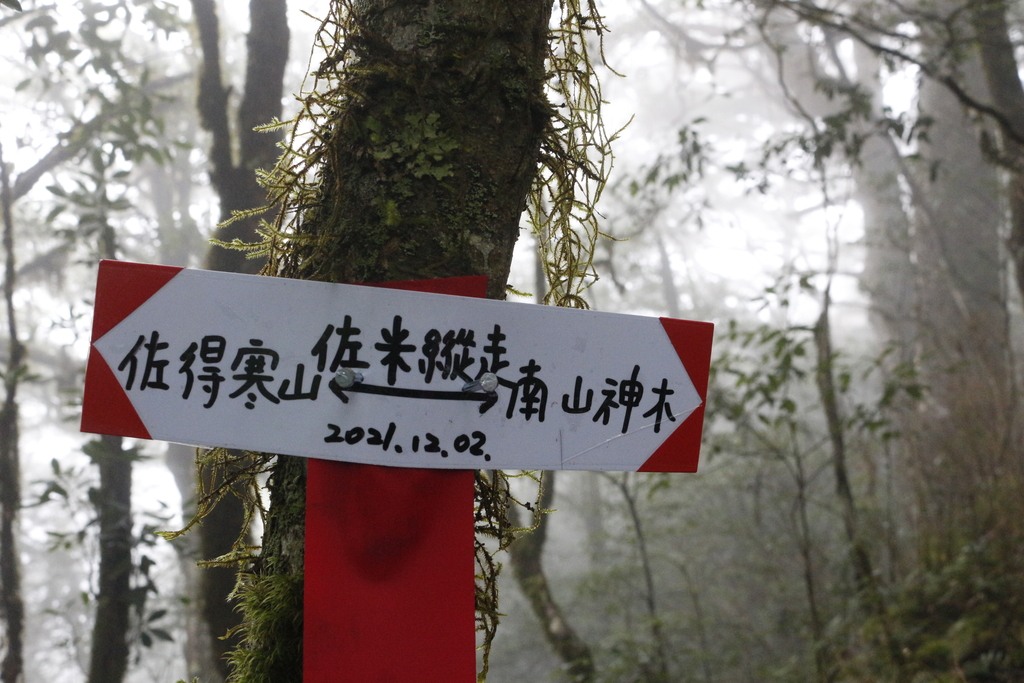 佐得寒山 佐米縱走 南山神木
2021.12.02.